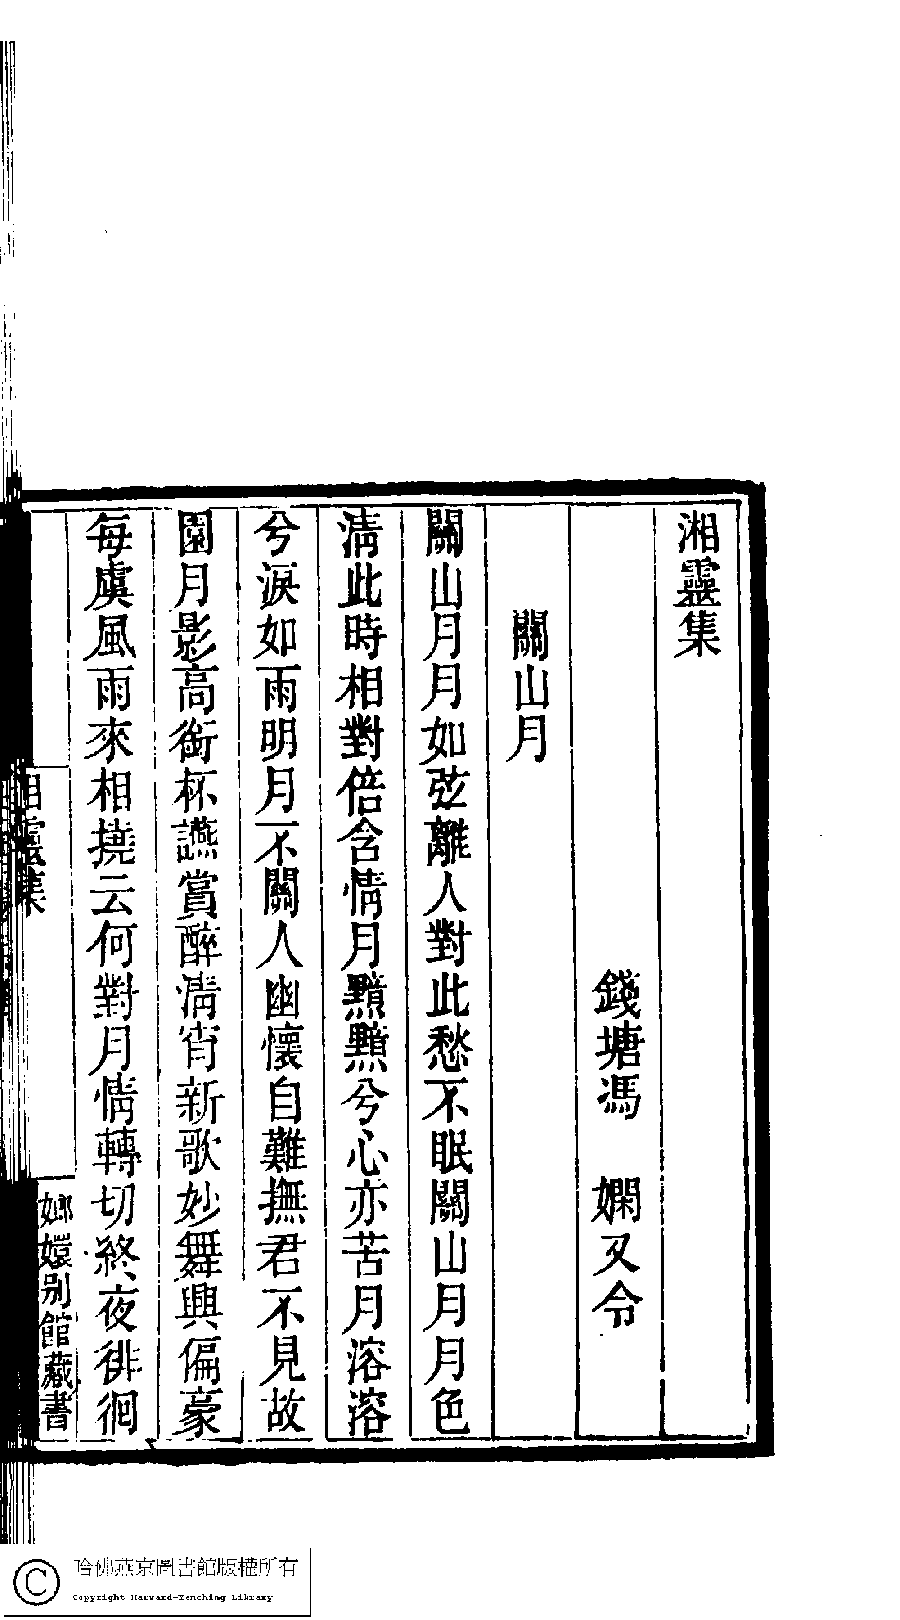 湘靈集
錢塘馮　嫻又令
關山月
關山月月如弦離人對此愁不眠關山月月色
淸此時相對倍含情月黯黯兮心亦苦月溶溶
兮淚如雨明月不關人幽懷自難撫君不見故
園月影高銜杯讌賞醉淸宵新歌妙舞興偏豪
每虞風雨來相撓云何對月情轉切終夜徘徊
湘靈集
嫏嬛別館藏書
哈佛燕京圖書館版權所有
Copyright Harvard-Yenching Library